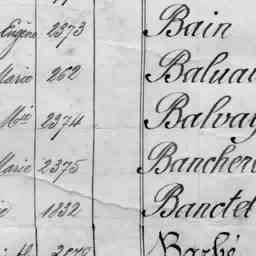 Eugène 2373 Bain
Marie 262 Baluai
Mie 2374 Balvay
Marie 2375 Bancher
1832 Banctel
Barbé